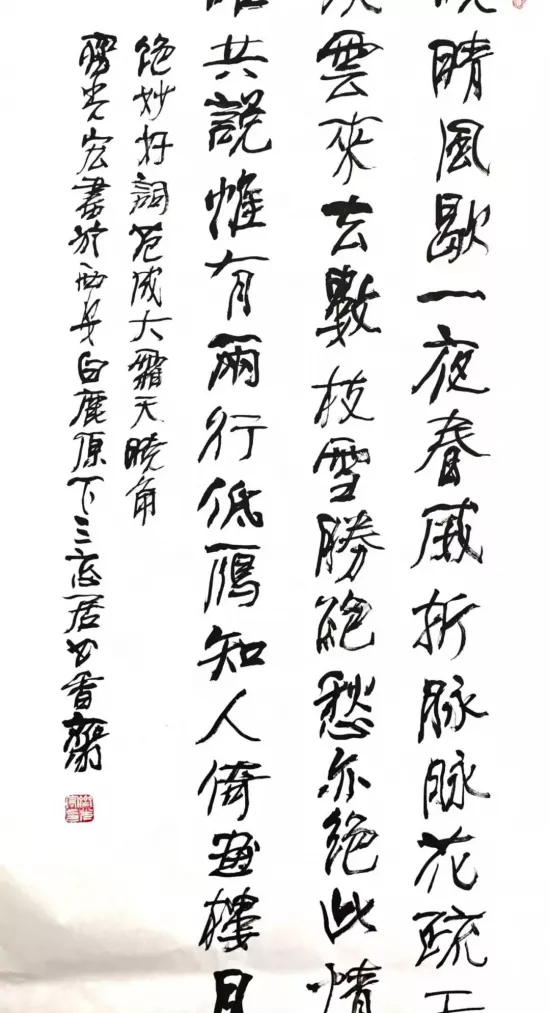 晴風歇一夜春威折脉脉花疏
雲來去數枝雪勝絶愁亦絶此情
共說惟有兩行低雁知人倚畫樓月
絶妙好詞范成大霜天曉角
宏書於西安白鹿原下三忘居香齋